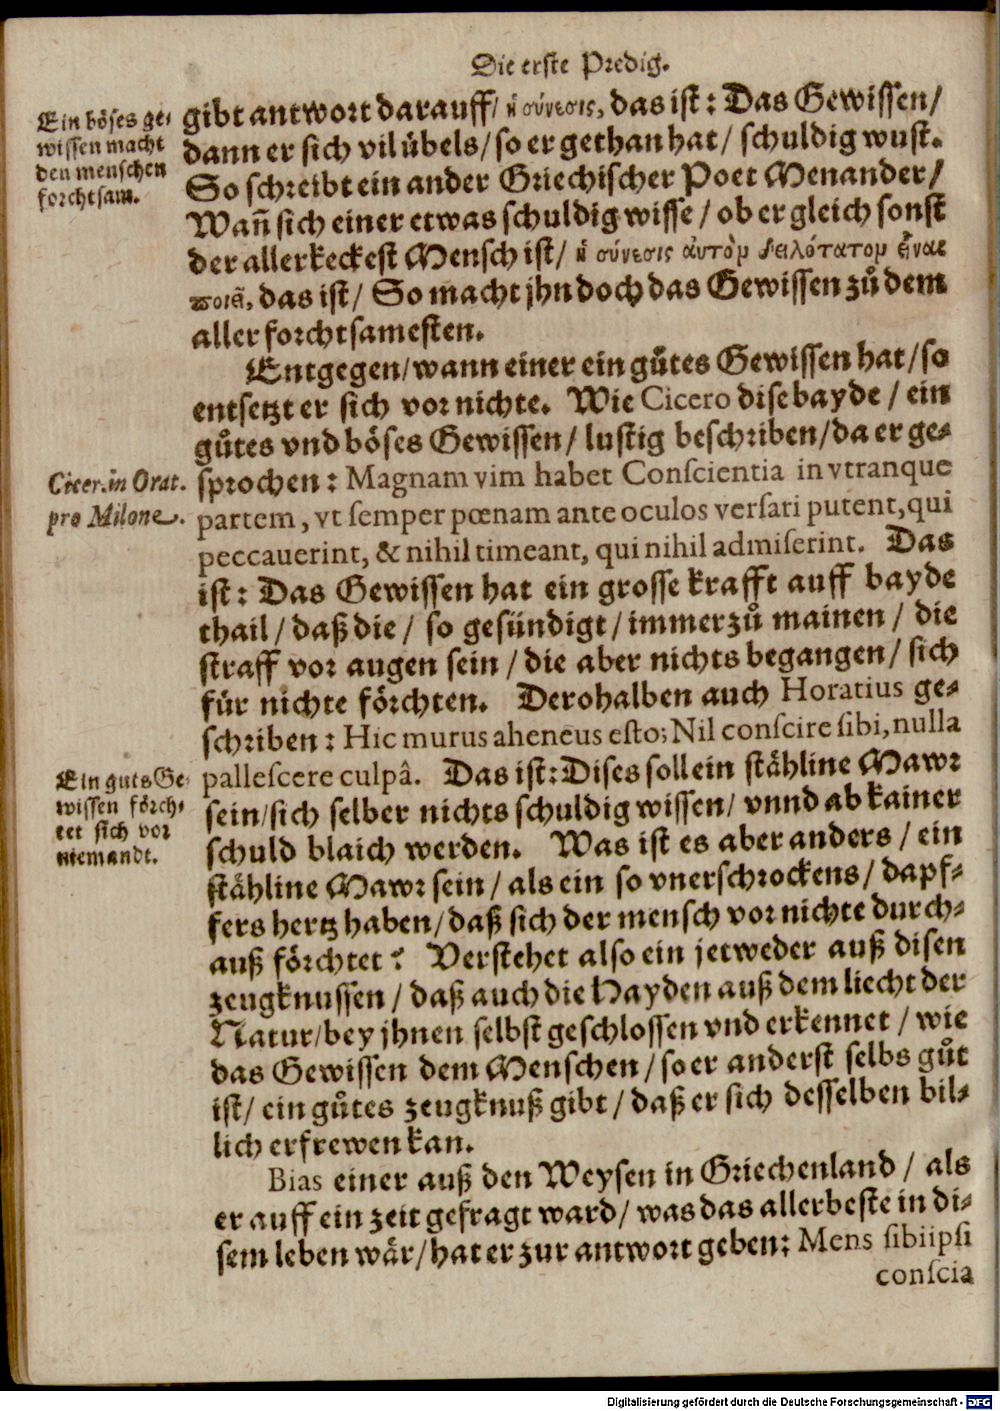 Die erste Predig.
Ein böses ge-
wissen macht
den menschen
forchtsam.
gibt antwort darauff/ ἡ σύνεσις, das ist: Das Gewissen/
dann er sich vil übels/ so er gethan hat/ schuldig wust.
So schreibt ein ander Griechischer Poet Menander/
Wañ sich einer etwas schuldig wisse/ ob er gleich sonst
der allerkeckest Mensch ist/ ἡ σύνεσις αὐτὸν δειλότατον εἶναι
ποιεῖ, das ist/ So macht jhn doch das Gewissen zů dem
aller forchtsamesten.
Entgegen/ wann einer ein gůtes Gewissen hat/ so
entsetzt er sich vor nichte. Wie Cicero dise bayde/ ein
gůtes vnd böses Gewissen/ lustig beschriben/ da er ge-
Cicer. in Orat.
pro Milone.
sprochen: Magnam vim habet Conscientia in vtranque
partem, vt semper pœnam ante oculos versari putent, qui
peccauerint, & nihil timeant, qui nihil admiserint. Das
ist: Das Gewissen hat ein grosse krafft auff bayde
thail/ daß die/ so gesündigt/ immerzů mainen/ die
straff vor augen sein/ die aber nichts begangen/ sich
für nichte förchten. Derohalben auch Horatius ge-
schriben: Hic murus aheneus esto; Nil conscire sibi, nulla
Ein guts Ge-
wissen förch-
tet sich vor
niemandt.
pallescere culpâ. Das ist: Dises soll ein stähline Mawr
sein/ sich selber nichts schuldig wissen/ vnnd ab kainer
schuld blaich werden. Was ist es aber anders/ ein
stähline Mawr sein/ als ein so vnerschrockens/ dapf-
fers hertz haben/ daß sich der mensch vor nichte durch-
auß förchtet? Verstehet also ein jetweder auß disen
zeugknussen/ daß auch die Hayden auß dem liecht der
Natur/ bey jhnen selbst geschlossen vnd erkennet/ wie
das Gewissen dem Menschen/ so er anderst selbs gůt
ist/ ein gůtes zeugknuß gibt/ daß er sich desselben bil-
lich erfrewen kan.
Bias einer auß den Weysen in Griechenland/ als
er auff ein zeit gefragt ward/ was das allerbeste in di-
sem leben wär/ hat er zur antwort geben: Mens sibi ipsi
conscia
Digitalisierung gefördert durch die Deutsche Forschungsgemeinschaft - DFG